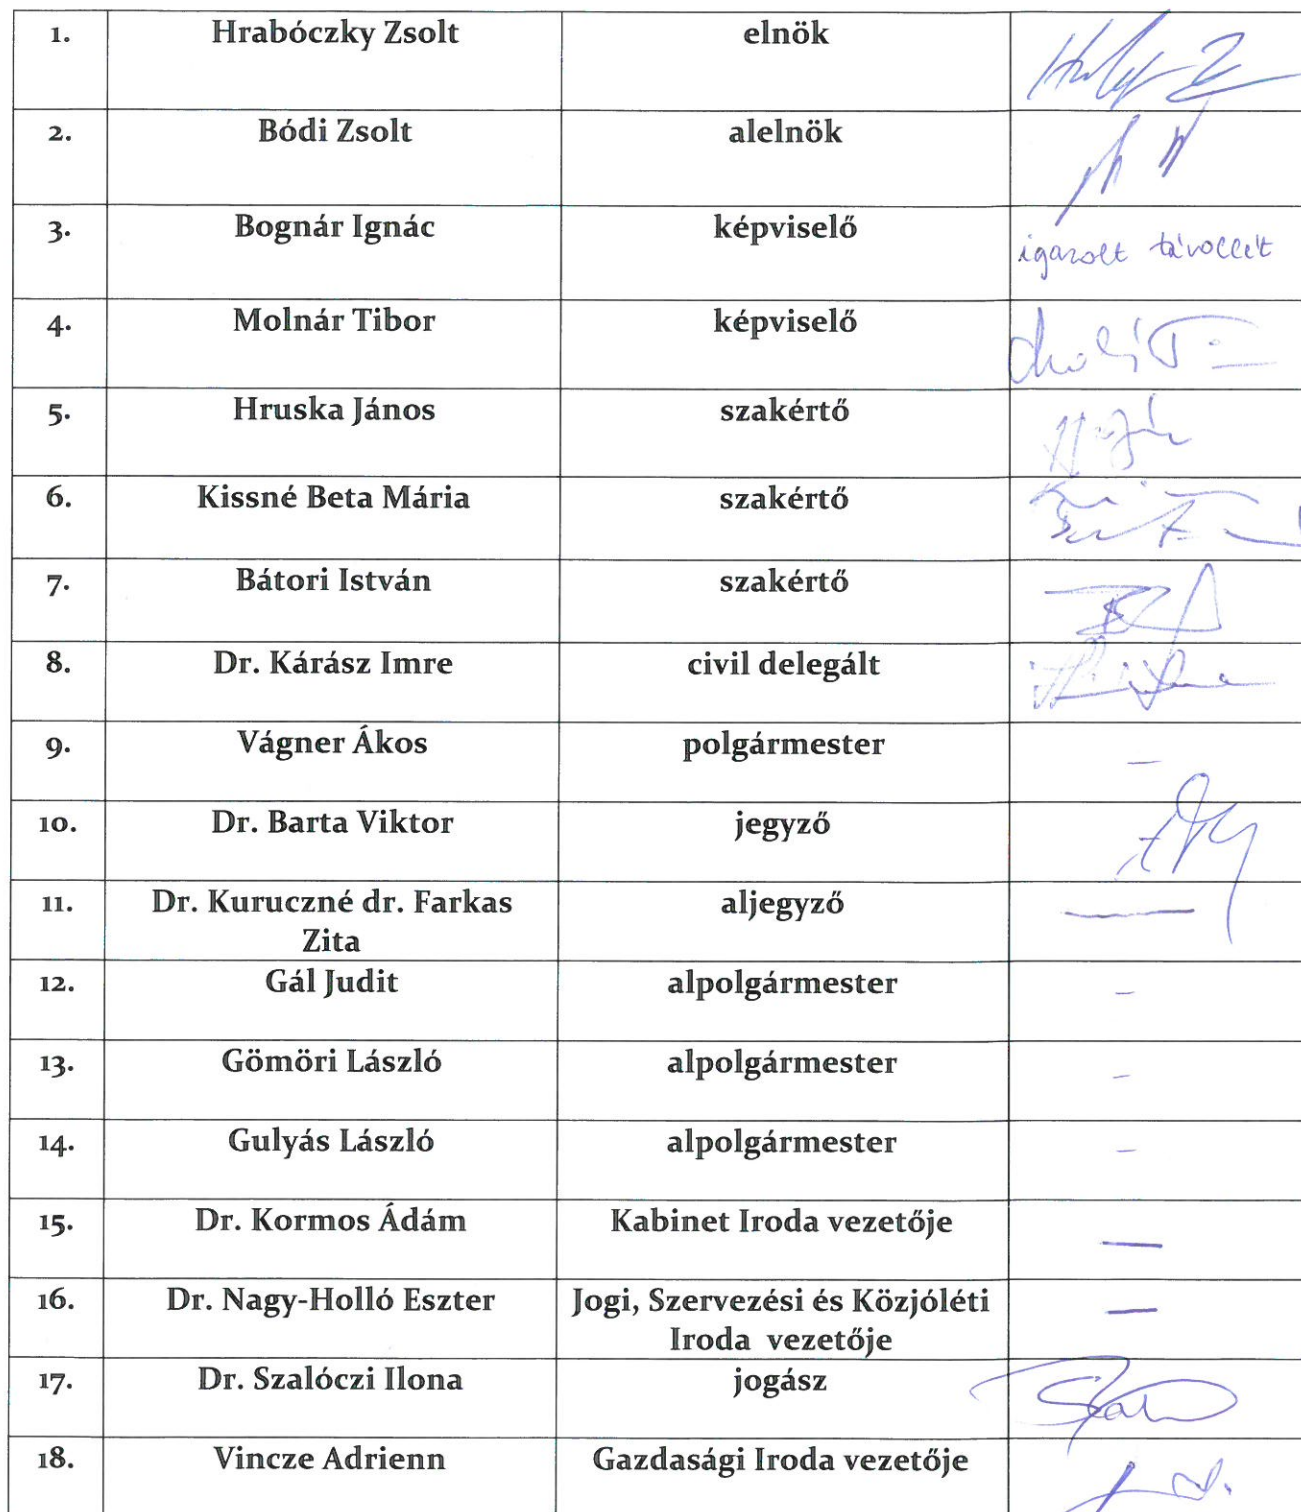 1. Hrabóczky Zsolt elnök
2. Bódi Zsolt alelnök
3. Bognár Ignác képviselő igazolt távollét
4. Molnár Tibor képviselő
5. Hruska János szakértő
6. Kissné Beta Mária szakértő
7. Bátori István szakértő
8. Dr. Kárász Imre civil delegált
9. Vágner Ákos polgármester –
10. Dr. Barta Viktor jegyző
11. Dr. Kuruczné dr. Farkas aljegyző —
Zita
12. Gál Judit alpolgármester –
13. Gömöri László alpolgármester –
14. Gulyás László alpolgármester –
15. Dr. Kormos Ádám Kabinet Iroda vezetője —
16. Dr. Nagy-Holló Eszter Jogi, Szervezési és Közjóléti —
Iroda vezetője
17. Dr. Szalóczi Ilona jogász
18. Vincze Adrienn Gazdasági Iroda vezetője